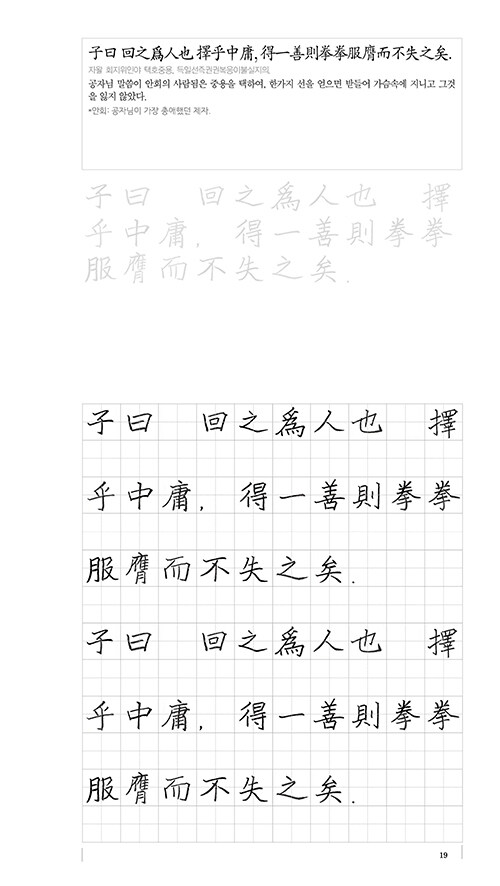 子曰 回之爲人也 擇乎中庸, 得一善則拳拳服膺而不失之矣.
자왈 회지위인야 택호중용, 득일선즉권권복응이불실지의.
공자님 말씀이 안회의 사람됨은 중용을 택하여, 한가지 선을 얻으면 받들어 가슴속에 지니고 그것
을 잃지 않았다.
*안회: 공자님이 가장 총애했던 제자.
子曰 回之爲人也 擇
乎中庸, 得一善則拳拳
服膺而不失之矣.
子曰 回之爲人也 擇
乎中庸, 得一善則拳拳
服膺而不失之矣.
子曰 回之爲人也 擇
乎中庸, 得一善則拳拳
服膺而不失之矣.
19